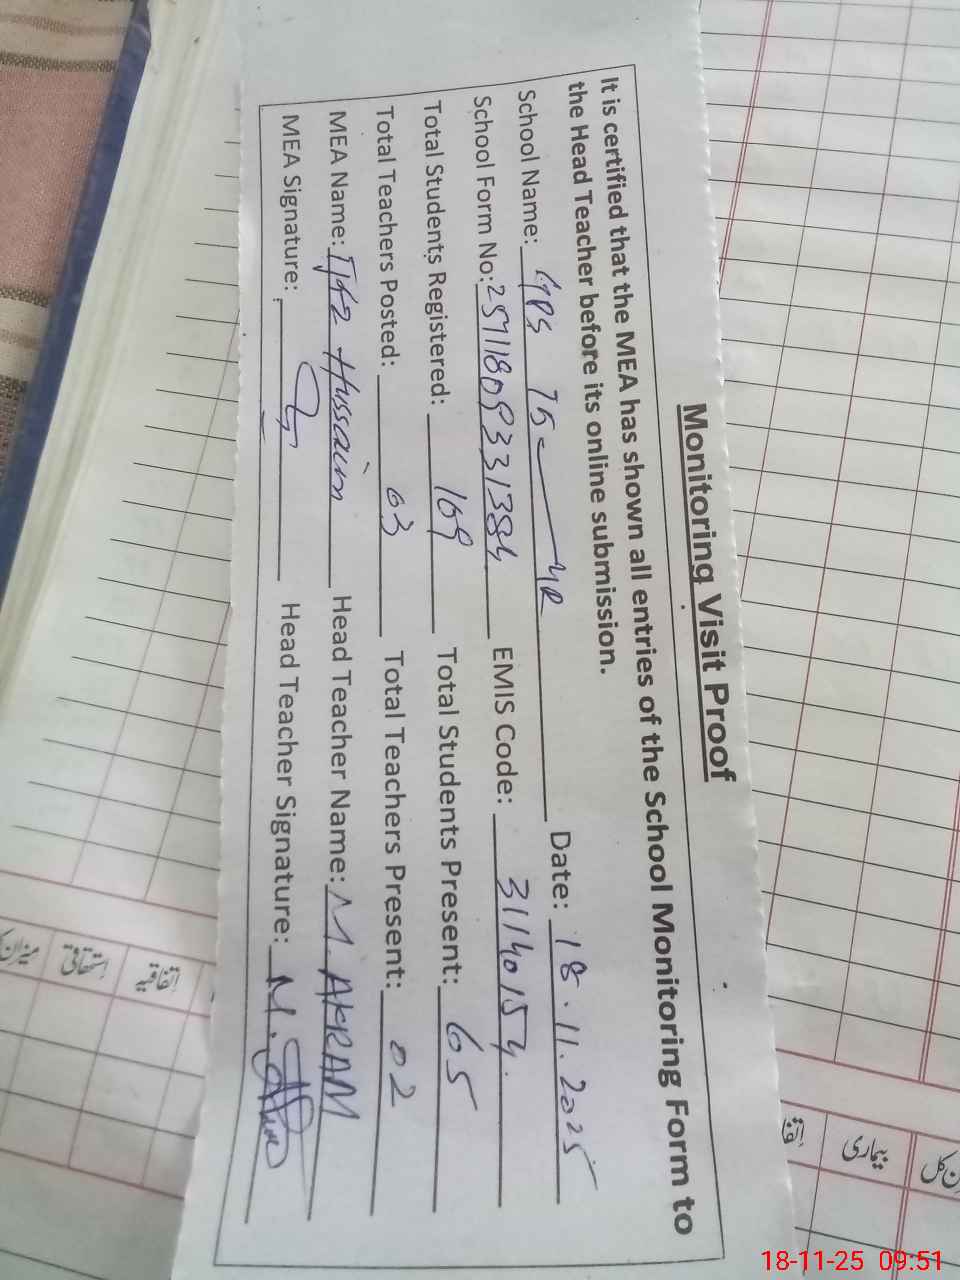 Monitoring Visit Proof
It is certified that the MEA has shown all entries of the School Monitoring Form to
the Head Teacher before its online submission.
School Name: GPS 75 4R Date: 18.11.2025
School Form No: EMIS Code: 31140154
Total Students Registered: 169 Total Students Present: 65
Total Teachers Posted: 03 Total Teachers Present: 02
MEA Name: Ijaz Hussain Head Teacher Name: M. AKRAM
MEA Signature: Head Teacher Signature: M.
اتفاقیہ
استحقاقی
میزان
بیماری
18-11-25 09:51